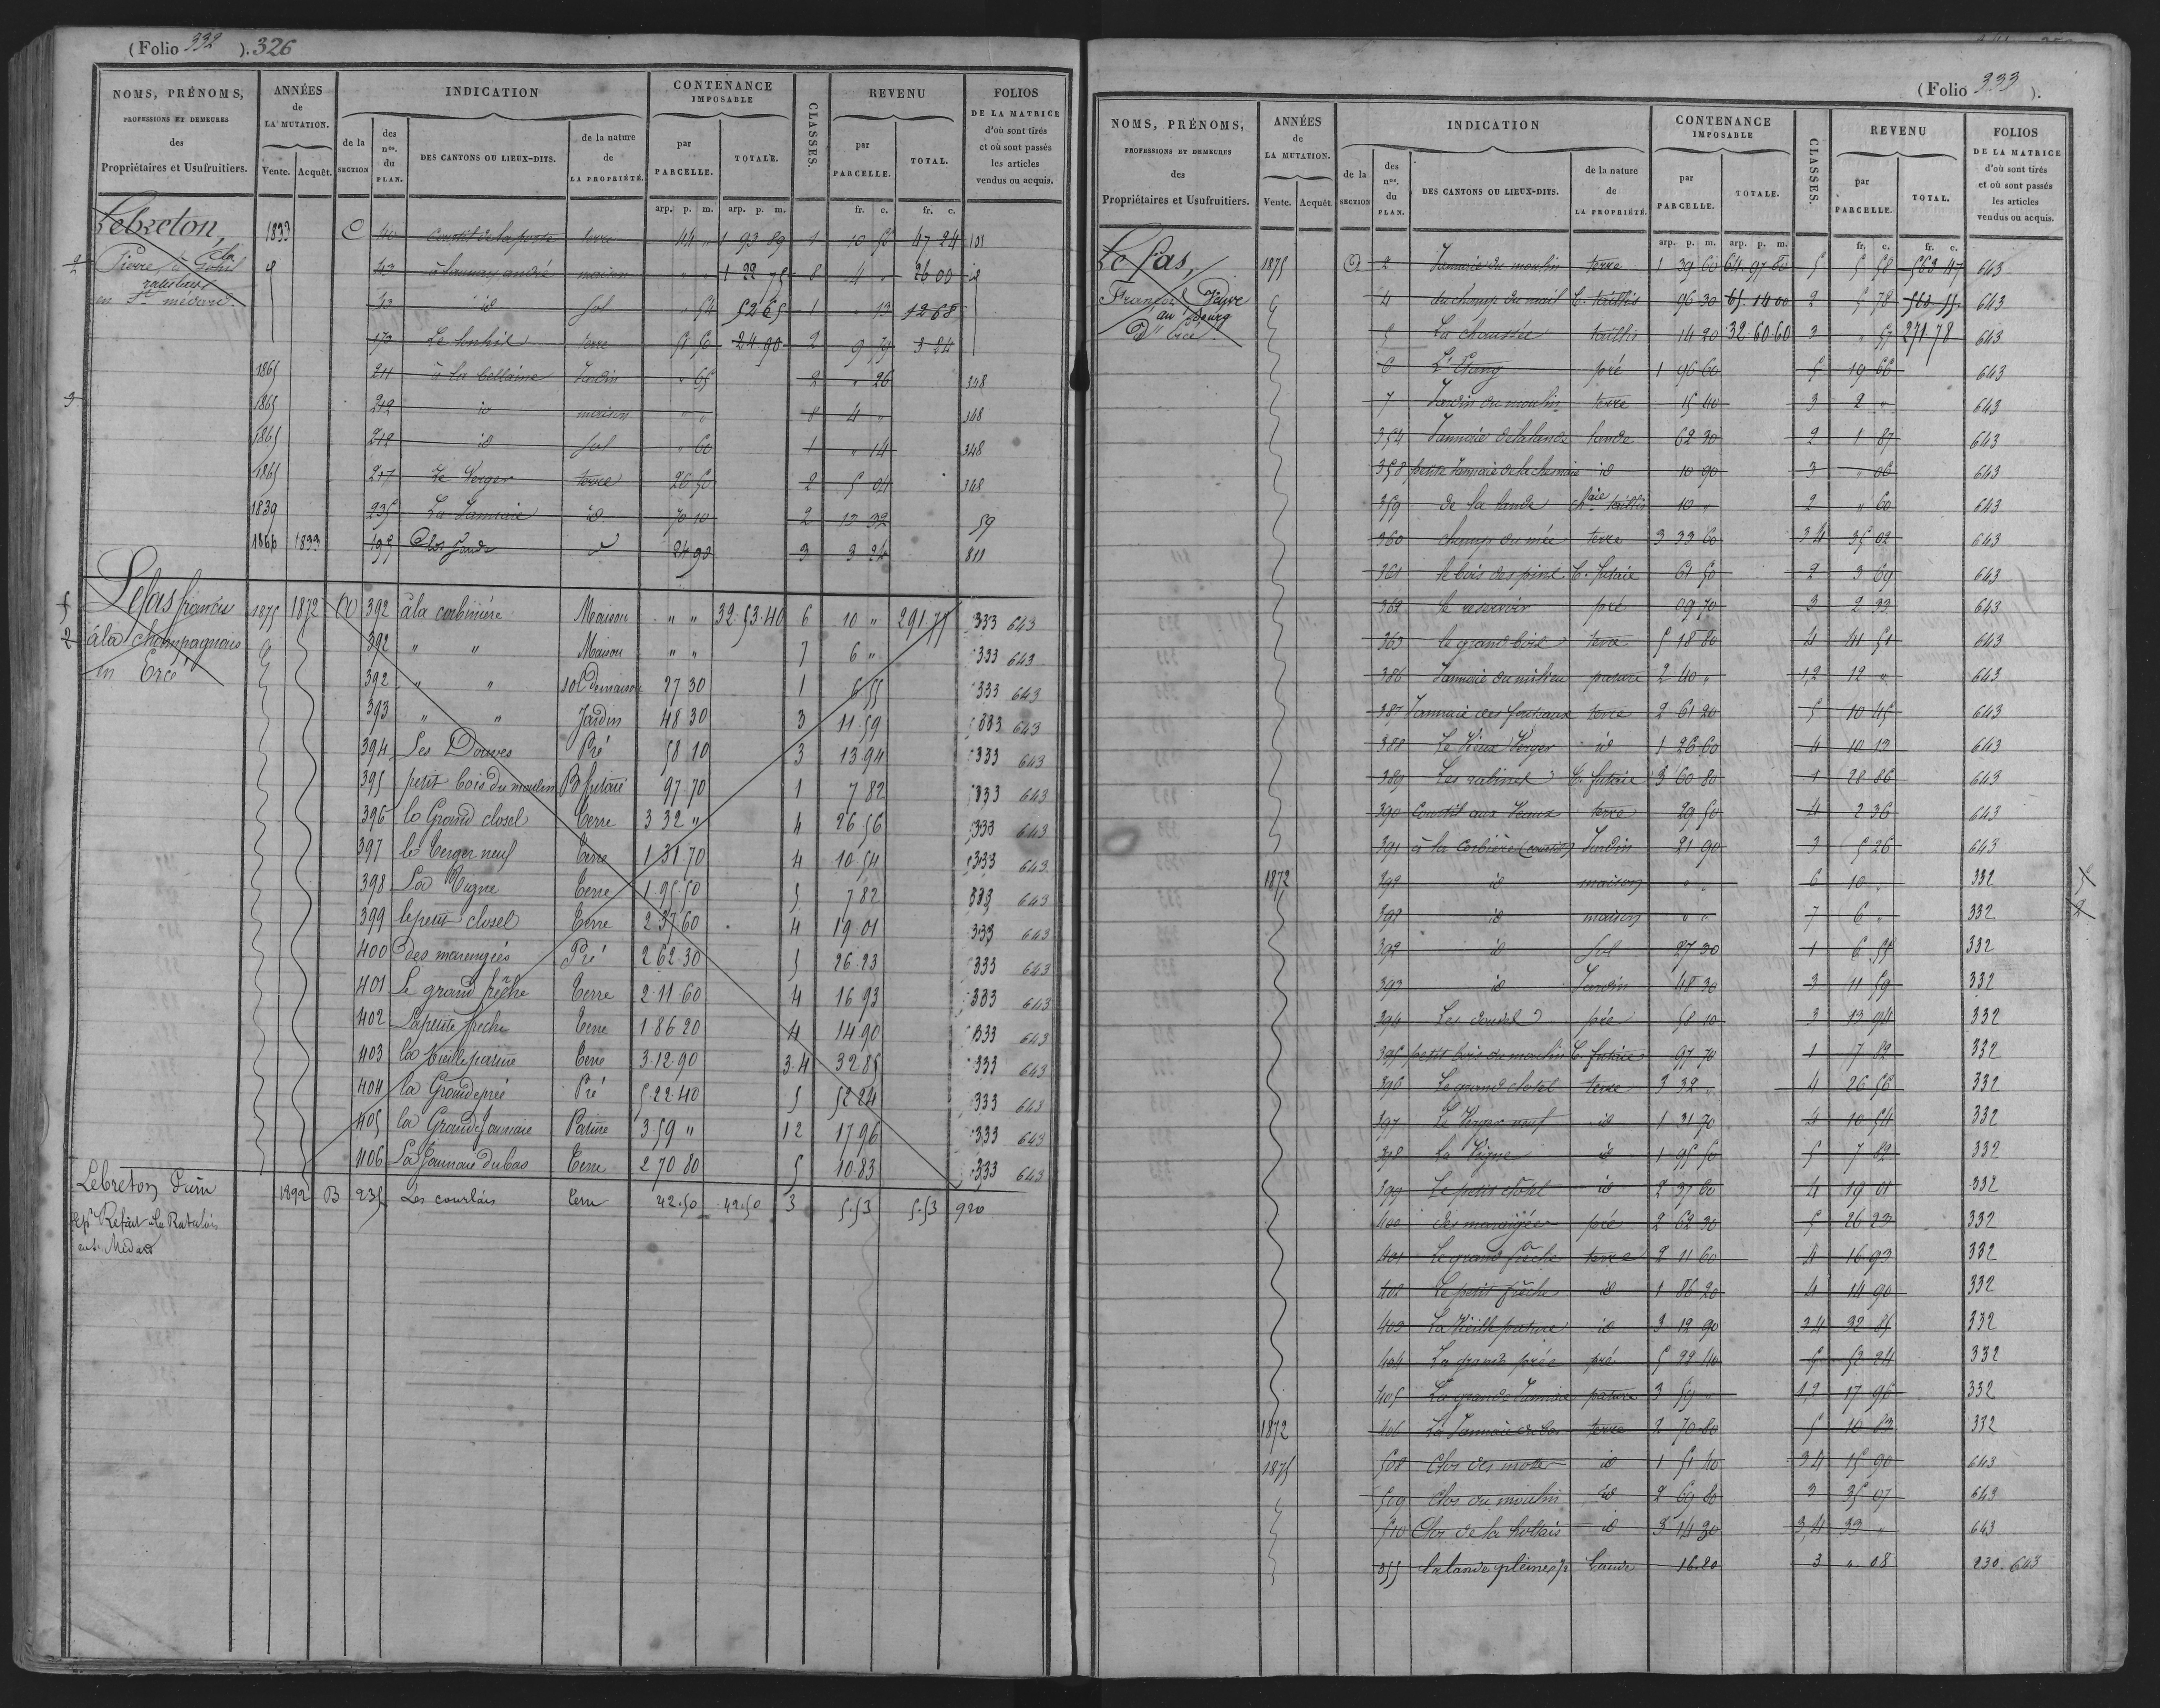 (Folio 332 ). 326
NOMS, PRÉNOMS, PROFESSIONS ET DEMEURES des Propriétaires et Usufruitiers.
ANNÉES de LA MUTATION. Vente. Acquêt.
INDICATION de la SECTION des nos. du PLAN. DES CANTONS OU LIEUX-DITS. de la nature de LA PROPRIÉTÉ.
CONTENANCE IMPOSABLE par PARCELLE. TOTALE.
CLASSES.
REVENU par PARCELLE. TOTAL.
FOLIOS DE LA MATRICE d'où sont tirés et où sont passés les articles vendus ou acquis.
arp. p. m. arp. p. m. fr. c. fr. c.
Lebreton, 1833 C 40 Courtil de la porte terre 44 " 1 93 89 1 10 56 47 24 101
Pierre, à
43 à launay andré maison " " 1 22 75 8 4 " 26 00
en St. médard.
43 id sol " 54 52 65 1 " 13 12 68
170 terre 58 50 24 90 2 9 39 3 24
1865 211 à la bellaine Jardin " 65 2 " 26 348
1865 212 id maison " " 8 4 " 348
1865 212 id sol " 60 1 " 14 348
1865 217 Le Verger terre 26 50 2 5 04 348
1839 235 La Jannaie id 70 10 2 13 32 59
1866 1833 195 24 90 3 3 24 811
Lefas francis 1875 1872 A 392 à la corbinière Maison " " 32.53.40 6 10 " 291.77 333 643
à la champagnais 392 " " Maison " " 7 6 " 333 643
en Ercé 392 " " sol de maison 27 30 1 6 55 333 643
393 " " Jardin 48 30 3 11.59 333 643
394 Les Douves Pré 58 10 3 13.94 333 643
395 petit bois du moulin B futaie 97.70 1 7 82 333 643
396 le Grand closel terre 3 32 " 4 26 56 333 643
397 le verger neuf terre 1.31.70 4 10.54 333 643
398 La Vigne terre 1.95.50 5 7 82 333 643
399 le petit closel terre 2 37 60 4 19 01 333 643
400 des marengiés Pré 2 62.30 5 26.23 333 643
401 Le grand frêche terre 2.11.60 4 16 93 333 643
402 La petite freche terre 1.86.20 4 14.90 333 643
403 la vieille pature terre 3.12.90 3.4 32.85 333 643
404 la Grande prée Pré 5.22.40 5 52 24 333 643
405 la Grande Jannaie Pature 3.59 " 1 2 17 96 333 643
406 La Jannaie du bas terre 2 70.80 5 10.83 333 643
Lebreton 1892 B 235 Les courtais terre 42.50 42.50 3 5.53 5.53 920
en St. Médard
(Folio 333 ).
NOMS, PRÉNOMS, PROFESSIONS ET DEMEURES des Propriétaires et Usufruitiers.
ANNÉES de LA MUTATION. Vente. Acquêt.
INDICATION de la SECTION des nos. du PLAN. DES CANTONS OU LIEUX-DITS. de la nature de LA PROPRIÉTÉ.
CONTENANCE IMPOSABLE par PARCELLE. TOTALE.
CLASSES.
REVENU par PARCELLE. TOTAL.
FOLIOS DE LA MATRICE d'où sont tirés et où sont passés les articles vendus ou acquis.
arp. p. m. arp. p. m. fr. c. fr. c.
Le fas, 1875 A 2 Jannaie du moulin terre 1 39 60 64.97.80 5 5 58 563 47 643
François 4 du champ du mail b. taillis 96 30 65.14 00 2 5 78 643
au bourg 5 La chaussée taillis 14 20 32 60 60 3 " 57 271 78 643
d'Ercé. 6 L'Etang pré 1 96 60 5 19 66 643
7 Jardin du moulin terre 15 40 3 2 " 643
354 Jannaie de la lande lande 62 30 2 1 87 643
358 petite Jannaie de la id 10 90 3 " 06 643
359 de la lande taillis 10 " 2 " 60 643
360 champ du mée terre 3 33 60 3 4 35 02 643
361 le bois des pins b. futaie 61 50 2 3 69 643
362 le reservoir pré 09 70 3 2 33 643
363 le grand bois terre 5 18 80 4 41 51 643
386 Jannaie du milieu pature 2 40 " 1,2 12 " 643
387 Jannaie des fouteaux terre 2 61 20 5 10 45 643
388 Le Vieux Verger id 1 26 60 4 10 13 643
389 Les rabines b. futaie 3 60 80 1 28 86 643
390 Courtil aux Veaux terre 29 50 4 2 36 643
391 à la Corbière (courtil) Jardin 21 90 3 5 26 643
1872 392 id maison " " 6 10 " 332
392 id maison " " 7 6 " 332
392 id sol 27 30 1 6 55 332
393 id Jardin 48 30 3 11 59 332
394 Les douves pré 58 10 3 13 94 332
395 petit bois du moulin b. futaie 97 70 1 7 82 332
396 Le grand closel terre 3 32 " 4 26 56 332
397 Le Verger neuf id 1 31 70 4 10 54 332
398 La Vigne id 1 95 50 5 7 82 332
399 Le petit closel id 2 37 60 4 19 01 332
400 des marengiées pré 2 62 30 5 26 23 332
401 Le grand frêche terre 2 11 60 4 16 93 332
402 Le petit frêche id 1 86 20 4 14 90 332
403 La Vieille pature id 3 12 90 3 4 32 85 332
404 La grande prée pré 5 22 40 5 52 24 332
405 La grande Jannaie pature 3 59 " 1,2 17 96 332
1872 406 La Jannaie du bas terre 2 70 80 5 10 83 332
1875 508 Clos des id 1 51 40 3 4 15 90 643
509 Clos du moulin id 2 69 80 3 35 07 643
510 Clos de la id 3 14 30 3,4 33 " 643
355 La lande lande 16.20 3 " 08 230. 643